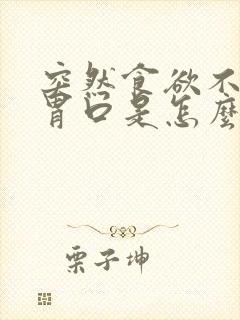 突然食欲不
胃口是怎麼
栗子坤